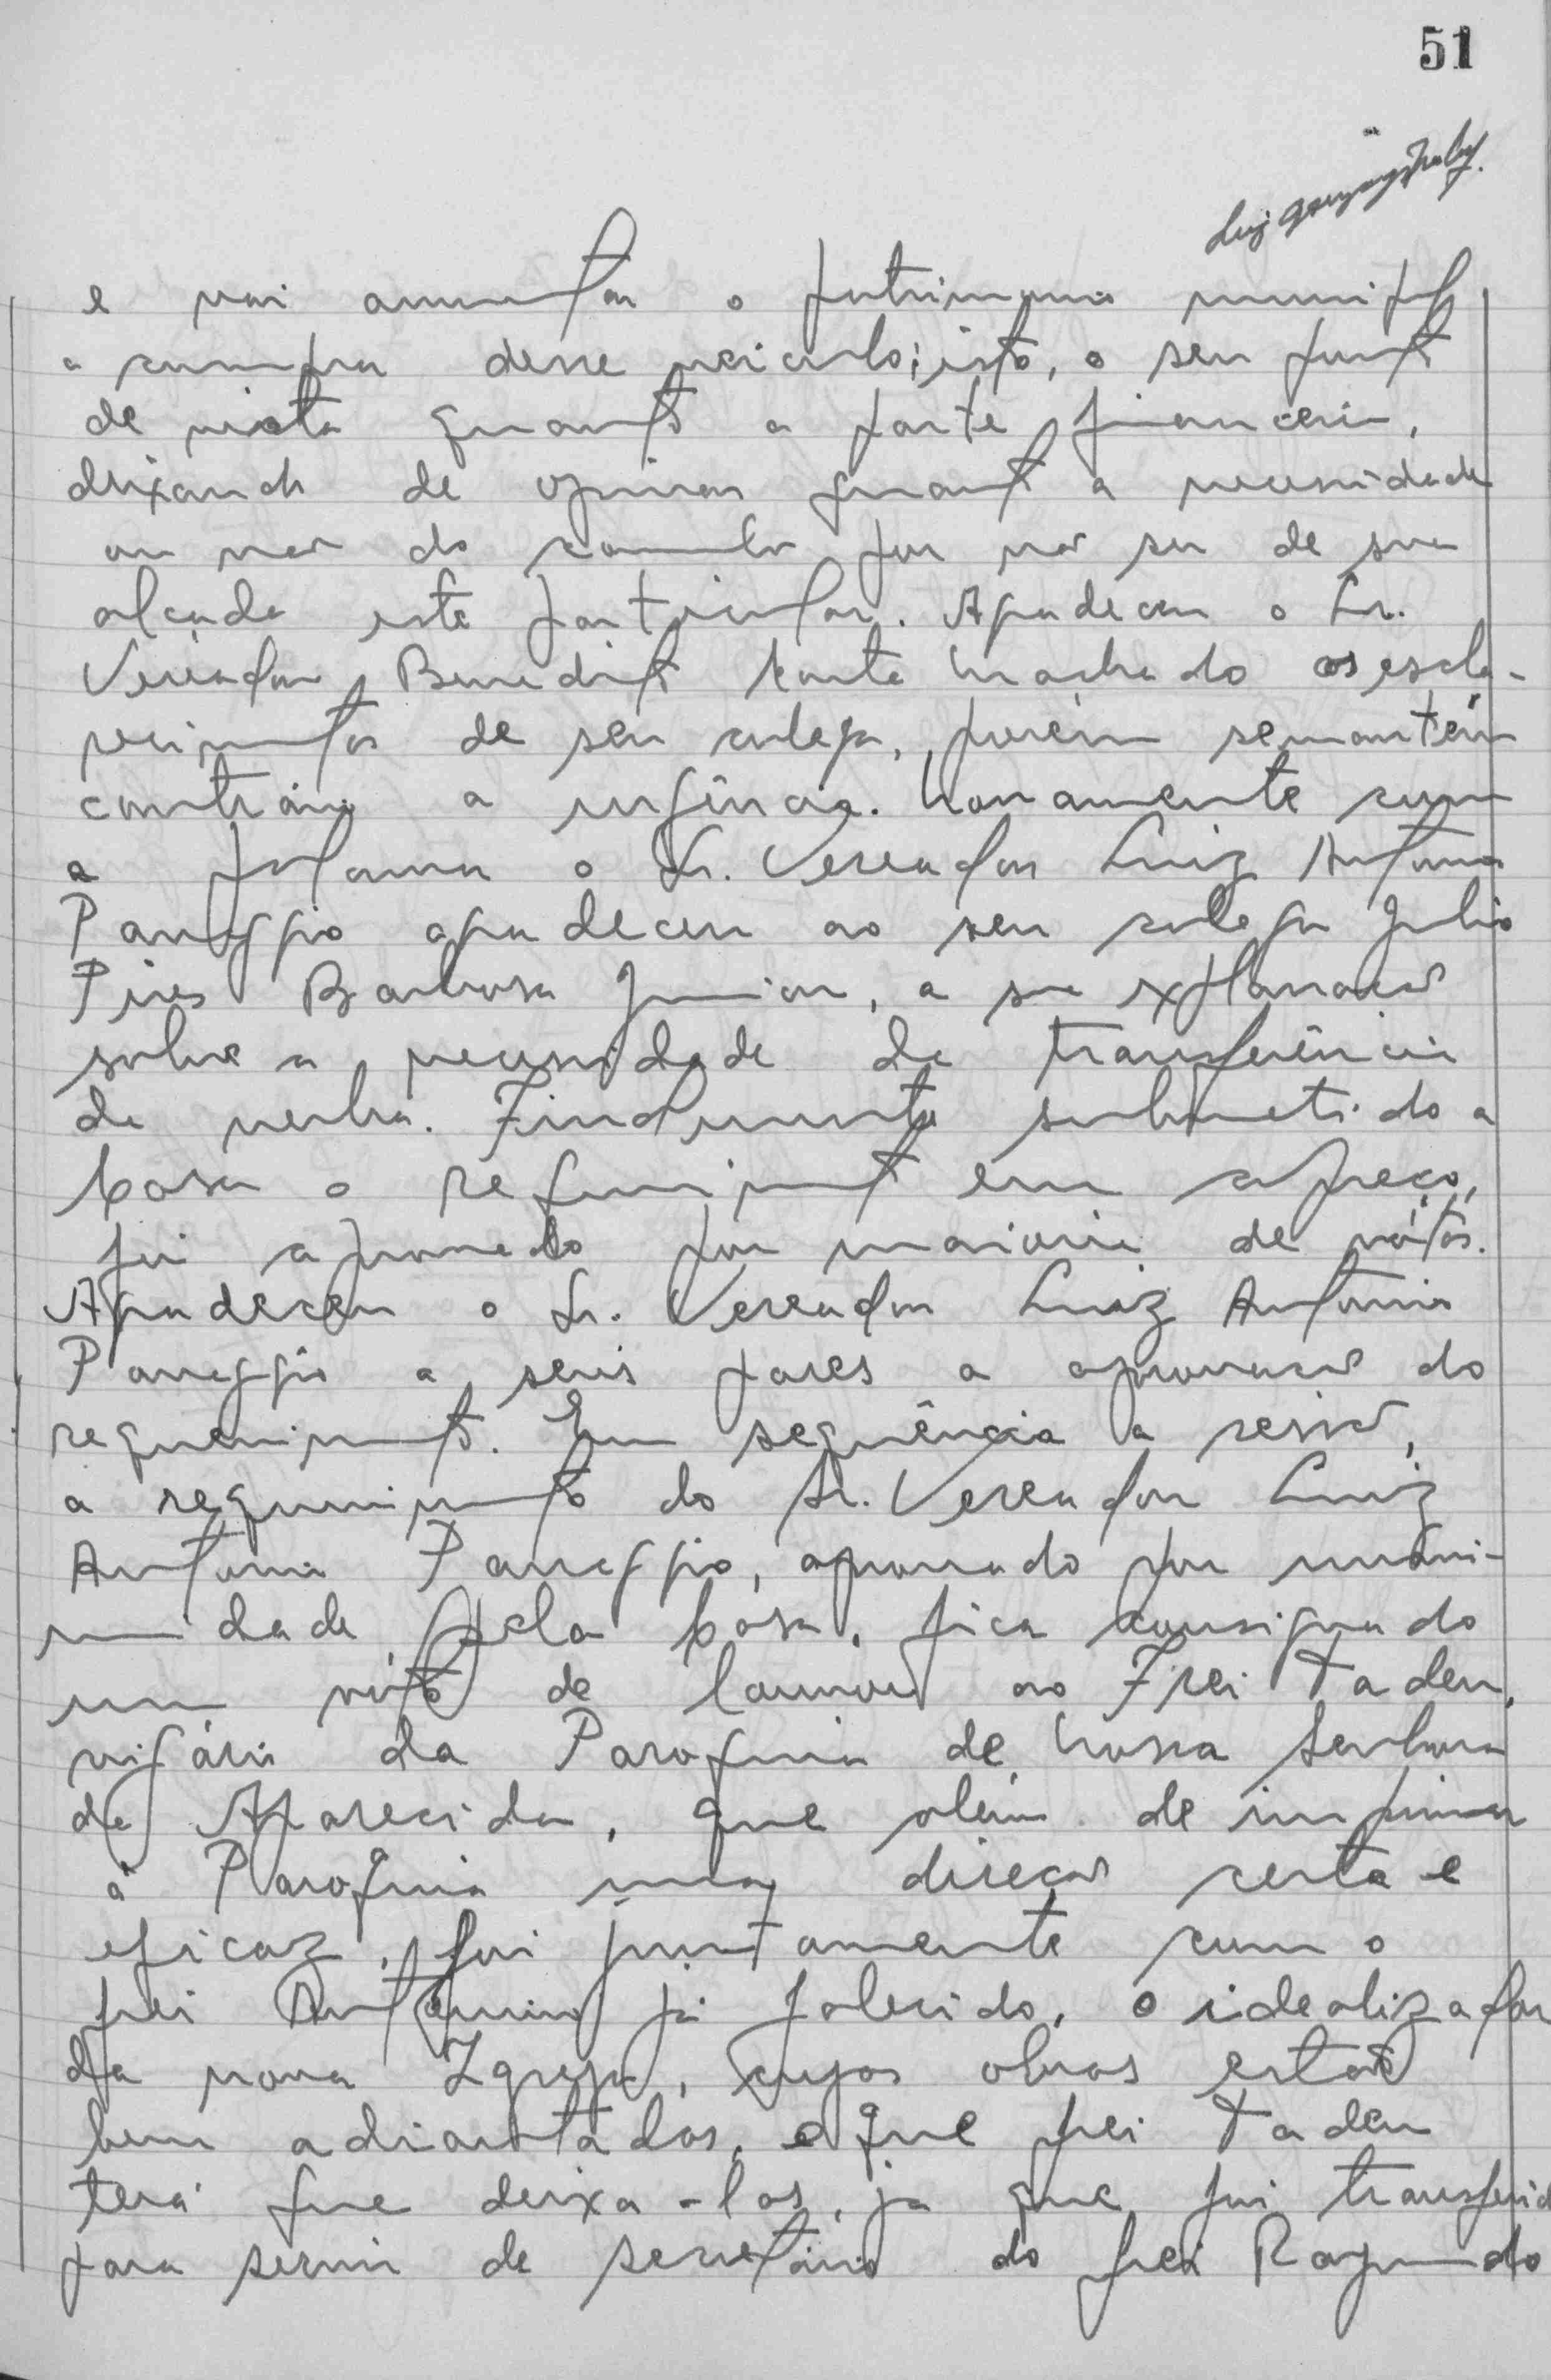 51
e vai aumentar o patrimonio municipal
a compra desse veiculo; isto, o seu ponto
de vista quanto a parte financeira,
deixando de opinar quanto a necessidade
ou não do caminhão por não ser de sua
alçada este particular. Agradeceu o Sr.
Vereador Benedito Machado os escla-
recimentos de seu colega, porém se mantém
contrário a urgência. Novamente com
a palavra o Sr. Vereador Luiz Antonio
Pareggio agradeceu ao seu colega Julio
Pires Barbosa Junior, a sua explanação
sobre a necessidade da transferência
da verba. Findo submetido a
Casa o requerimento em apreço,
foi aprovado por maioria de vótos.
Agradeceu o Sr. Vereador Luiz Antonio
Pareggio a seus pares a aprovação do
requerimento. Em sequência a sessão,
a requerimento do Sr. Vereador Luiz
Antonio Pareggio, aprovado por unani-
midade pela Casa, fica consignado
um vóto de louvor ao Frei Tadeu,
vigário da Paroquia de Nossa Senhora
da Aparecida, que além de imprimir
á Paroquia uma direção certa e
eficaz, foi juntamente com o
frei já falecido, o idealizador
da nova Igreja, cujas obras estão
bem adiantadas, e que frei Tadeu
terá que deixa-las, já que foi transferido
para servir de secretário do frei Raymundo